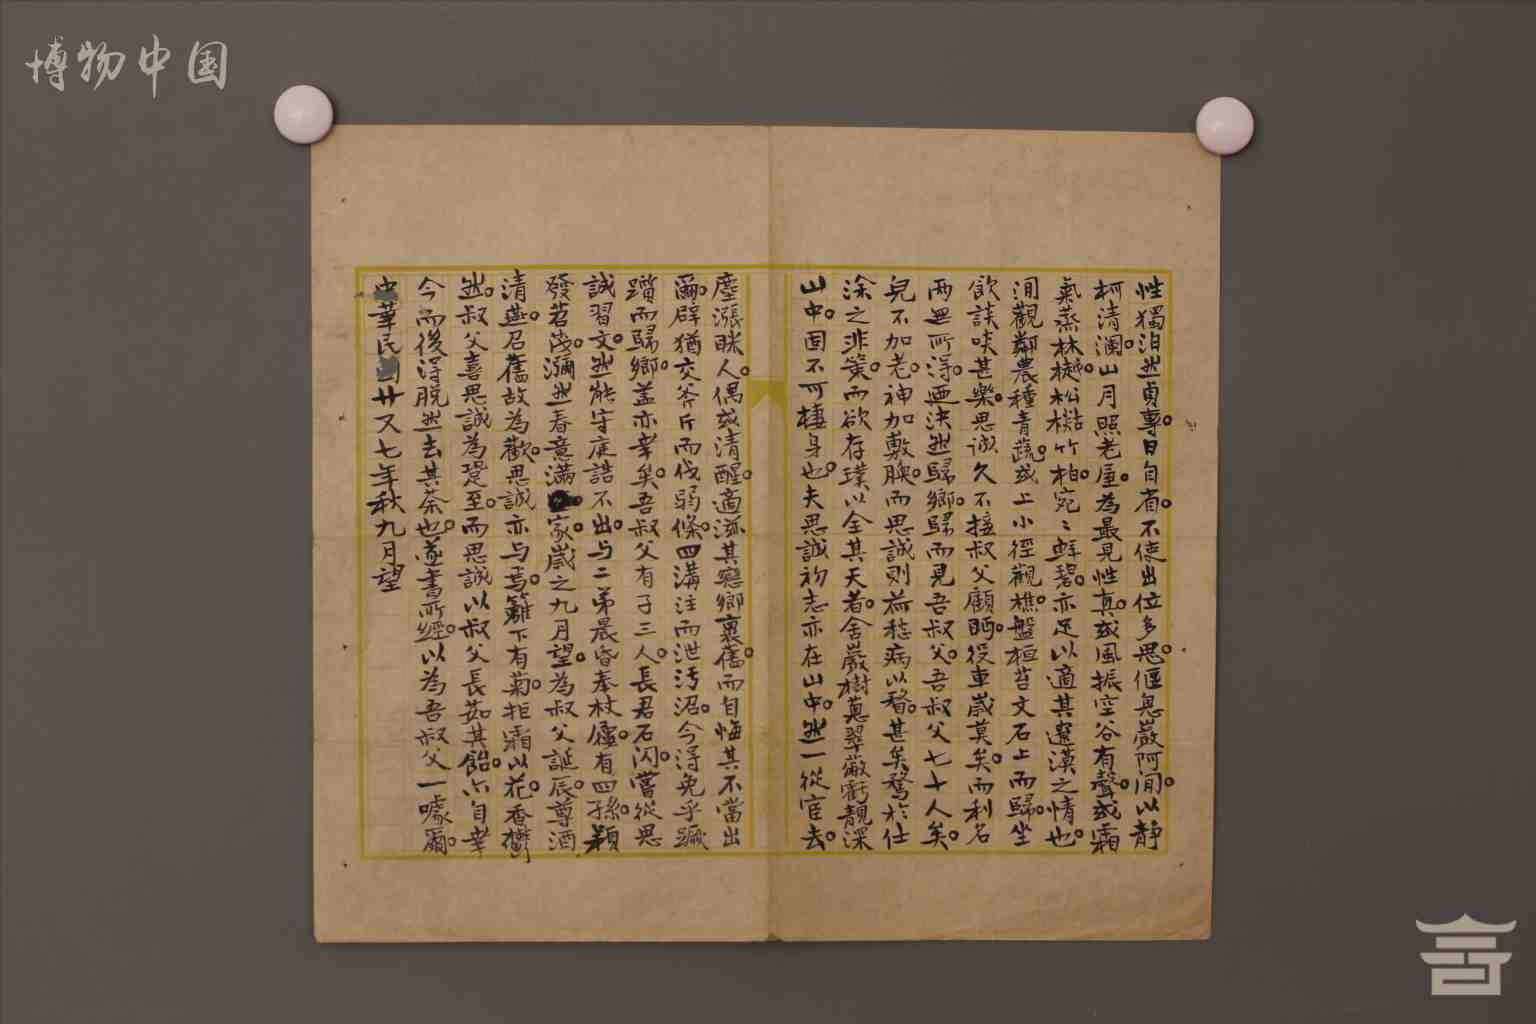 博物中国
性獨泊然貞專。日自省。不使出位多思。偃息巖阿間。以靜
柯清瀾。山月照老屋。為最見性真。或風振空谷有聲。或霜
氣蒸林樾。松檆竹柏。宛〻鮮碧。亦足以適其邃漠之情也。
間觀鄰農種青蔬。或上小徑觀樵。盤桓苔文石上而歸。坐
飲談笑甚樂。思誠久不接叔父顧眄。役車歲莫矣。而利名
兩無所淂。迺決然歸鄉。歸而見吾叔父。吾叔父七十人矣。
皃不加老。神加敷腴。而思誠則荷嵇病以瘠。甚矣騖於仕
涂之非策。而欲存璞以全其天者。舍巖樹蔥翠蔽虧靚深
山中。固不可棲身也。夫思誠初志亦在山中。然一從宦去。
塵漲眯人。偶或清醒。適滋其戀鄉裏舊。而自悔其不當出
爾。辟猶交斧斤而伐弱條。四溝注而泄汚沼。今淂免乎蹶
躓而歸鄉。蓋亦幸矣。吾叔父有子三人。長君石閃。嘗從思
誠習文。然能守庭誥不出。与二弟晨昏奉杖屨。有四孫。穎
發苕茂。瀰然春意滿家。歲之九月望。為叔父誕辰。尊酒
清燕。召舊故為歡。思誠亦与焉。籬下有菊。拒霜以花。香鬱
然。叔父喜思誠為跫至。而思誠以叔父長茹其飴。亦自幸
今而後淂脫然去其荼也。遂書所經。以為吾叔父一噱爾。
中華民國廿又七年秋九月望